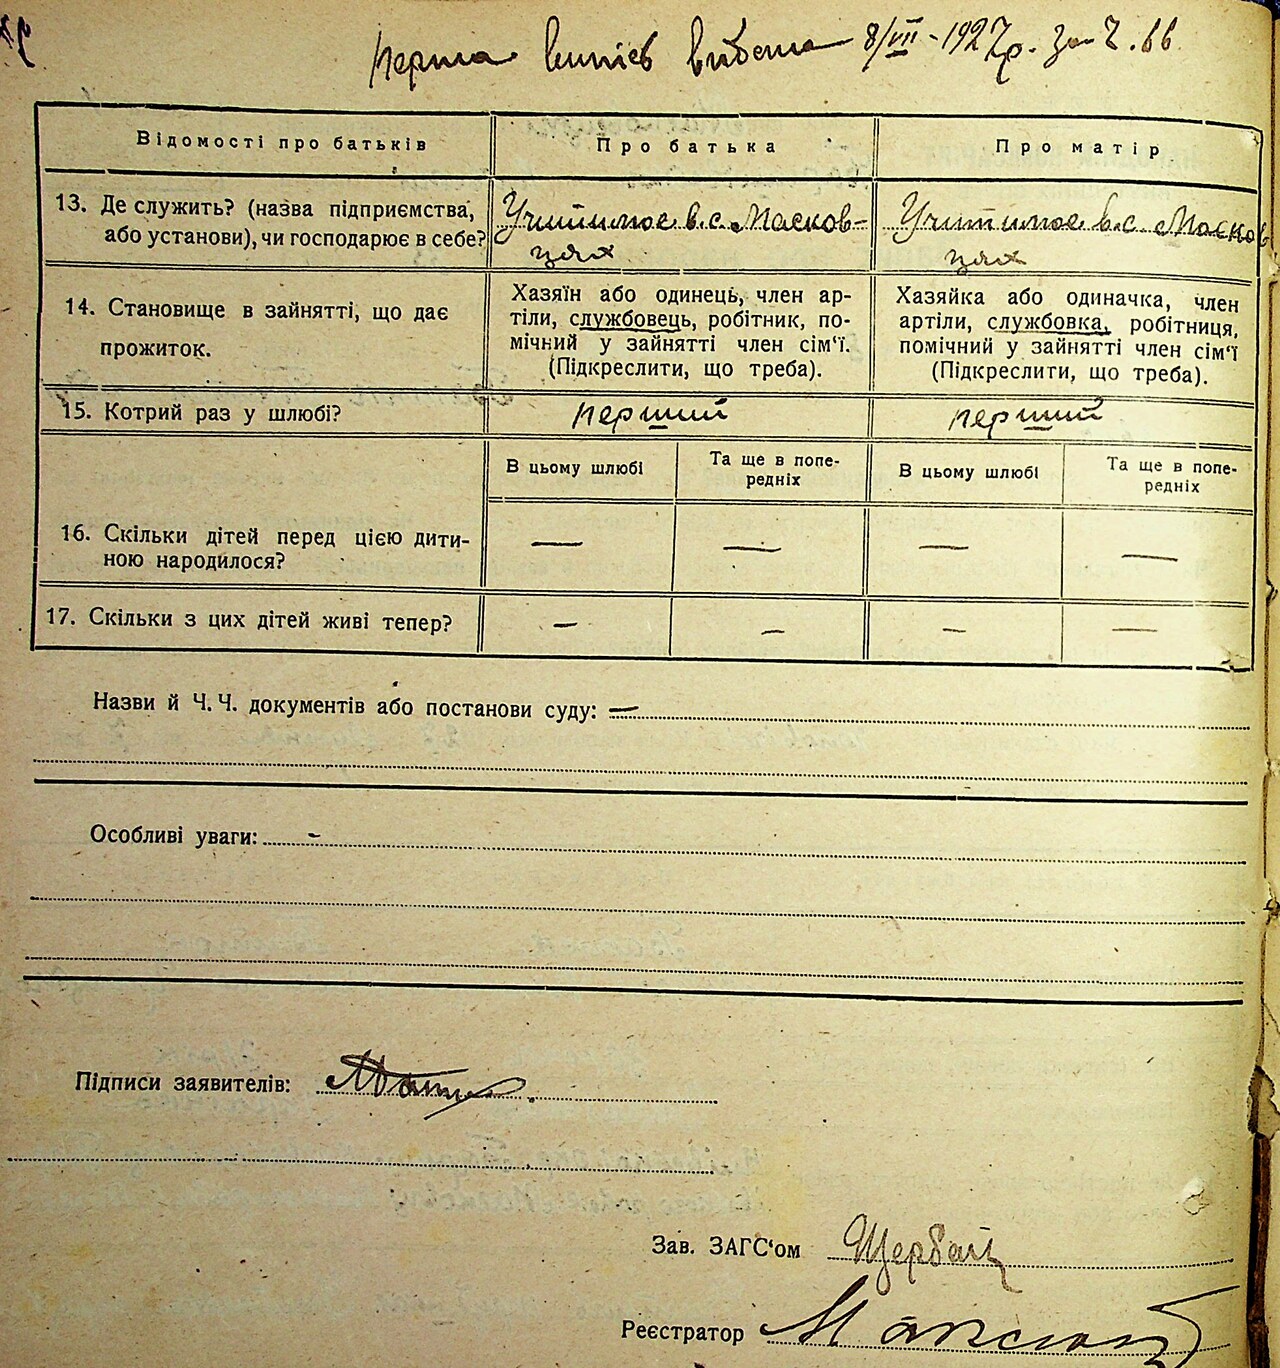 перша випись видана 8/VII-1927р. за Ч. 66
Відомості про батьків
Про батька
Про матір
13. Де служить? (назва підприємства, або установи), чи господарює в себе?
Учителює в с. Масков-
цях
Учителює в с. Масков
цях
14. Становище в зайнятті, що дає
прожиток.
Хазяїн або одинець, член ар-
тіли, службовець, робітник, по-
мічний у зайнятті член сім'ї.
(Підкреслити, що треба).
Хазяйка або одиначка, член
артіли, службовка, робітниця,
помічний у зайнятті член сім'ї
(Підкреслити, що треба).
15. Котрий раз у шлюбі?
перший
перший
В цьому шлюбі
Та ще в попе-
редніх
В цьому шлюбі
Та ще в попе-
редніх
16. Скільки дітей перед цією дити-
ною народилося?
—
—
—
—
17. Скільки з цих дітей живі тепер?
—
—
—
—
Назви й Ч. Ч. документів або постанови суду: —
Особливі уваги: -
Підписи заявителів:
Зав. ЗАГС'ом Щербац
Реєстратор